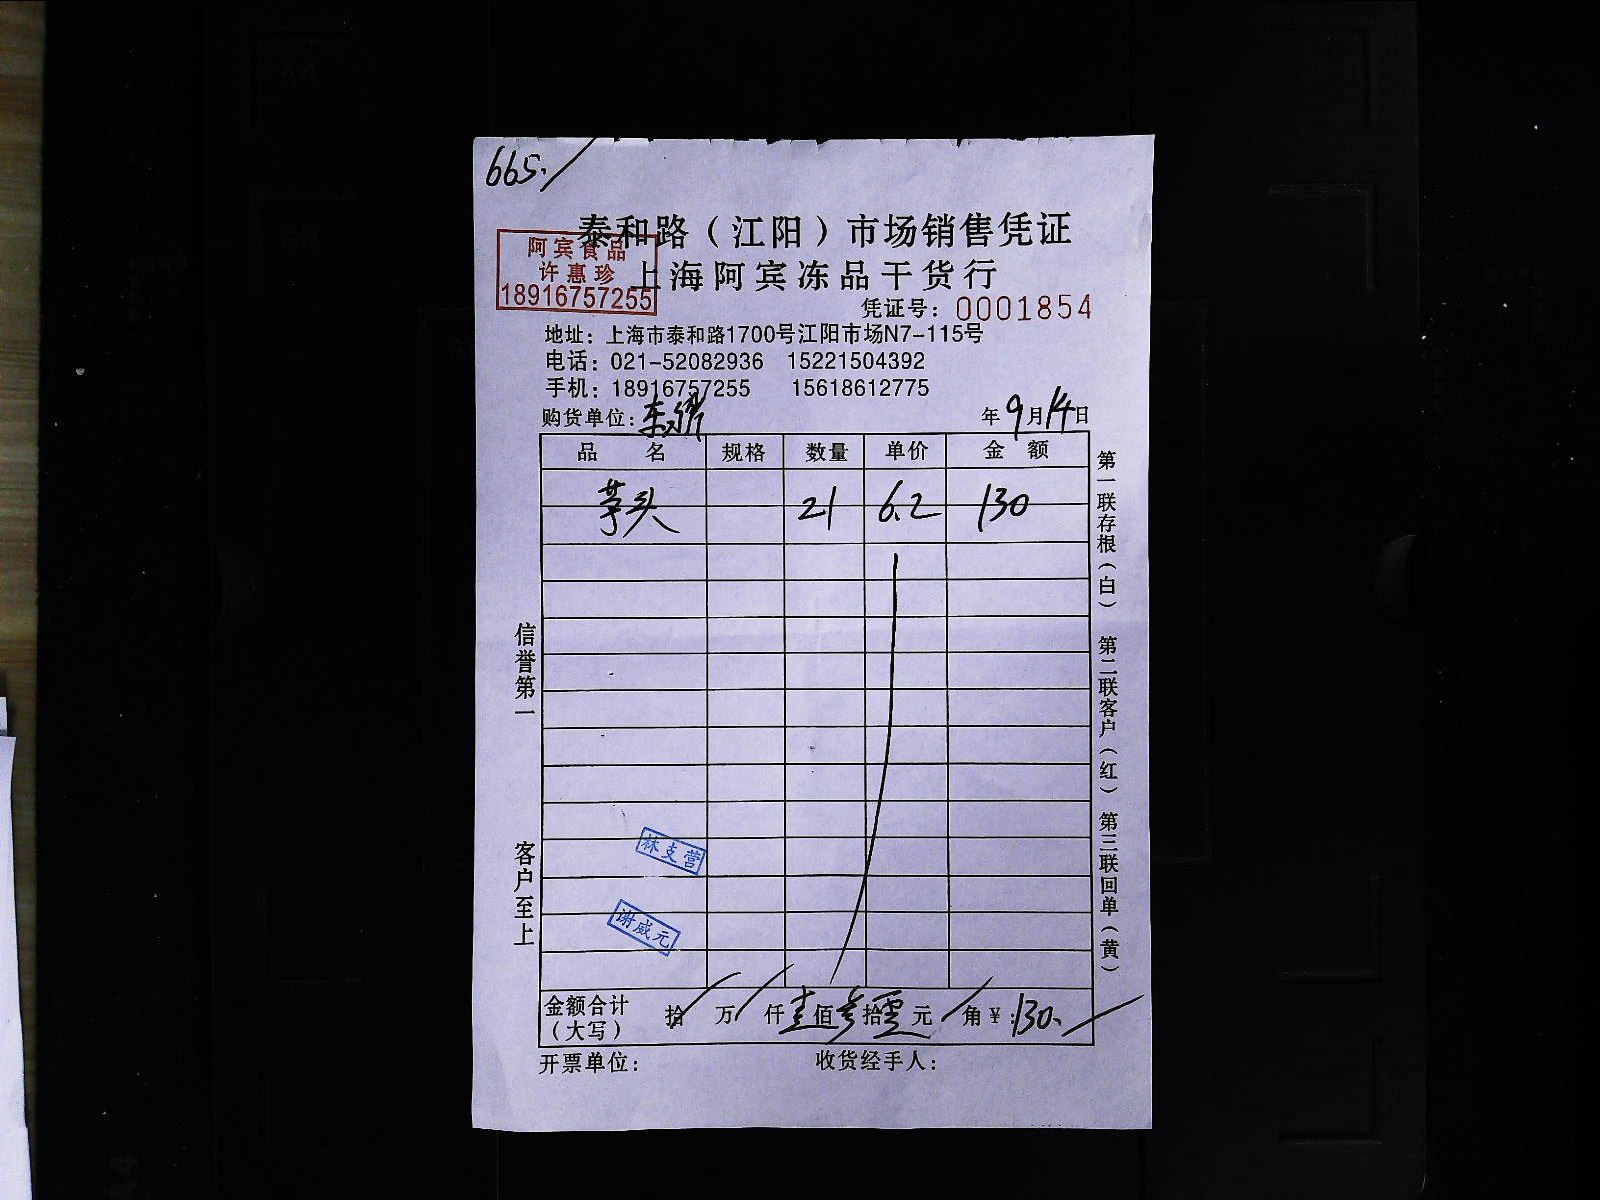 665.
泰和路（江阳）市场销售凭证
阿宾食品
许惠珍
18916757255
上海阿宾冻品干货行
凭证号：0001854
地址：上海市泰和路1700号江阳市场N7-115号
电话：021-52082936 15221504392
手机：18916757255 15618612775
购货单位： 年9月14日
品名 规格 数量 单价 金额
芋头 21 6.2 130
信誉第一 客户至上
林支营
谢威元
金额合计（大写） 拾 万 仟壹佰叁拾零元 角￥：130.
开票单位： 收货经手人：
第一联存根（白） 第二联客户（红） 第三联回单（黄）